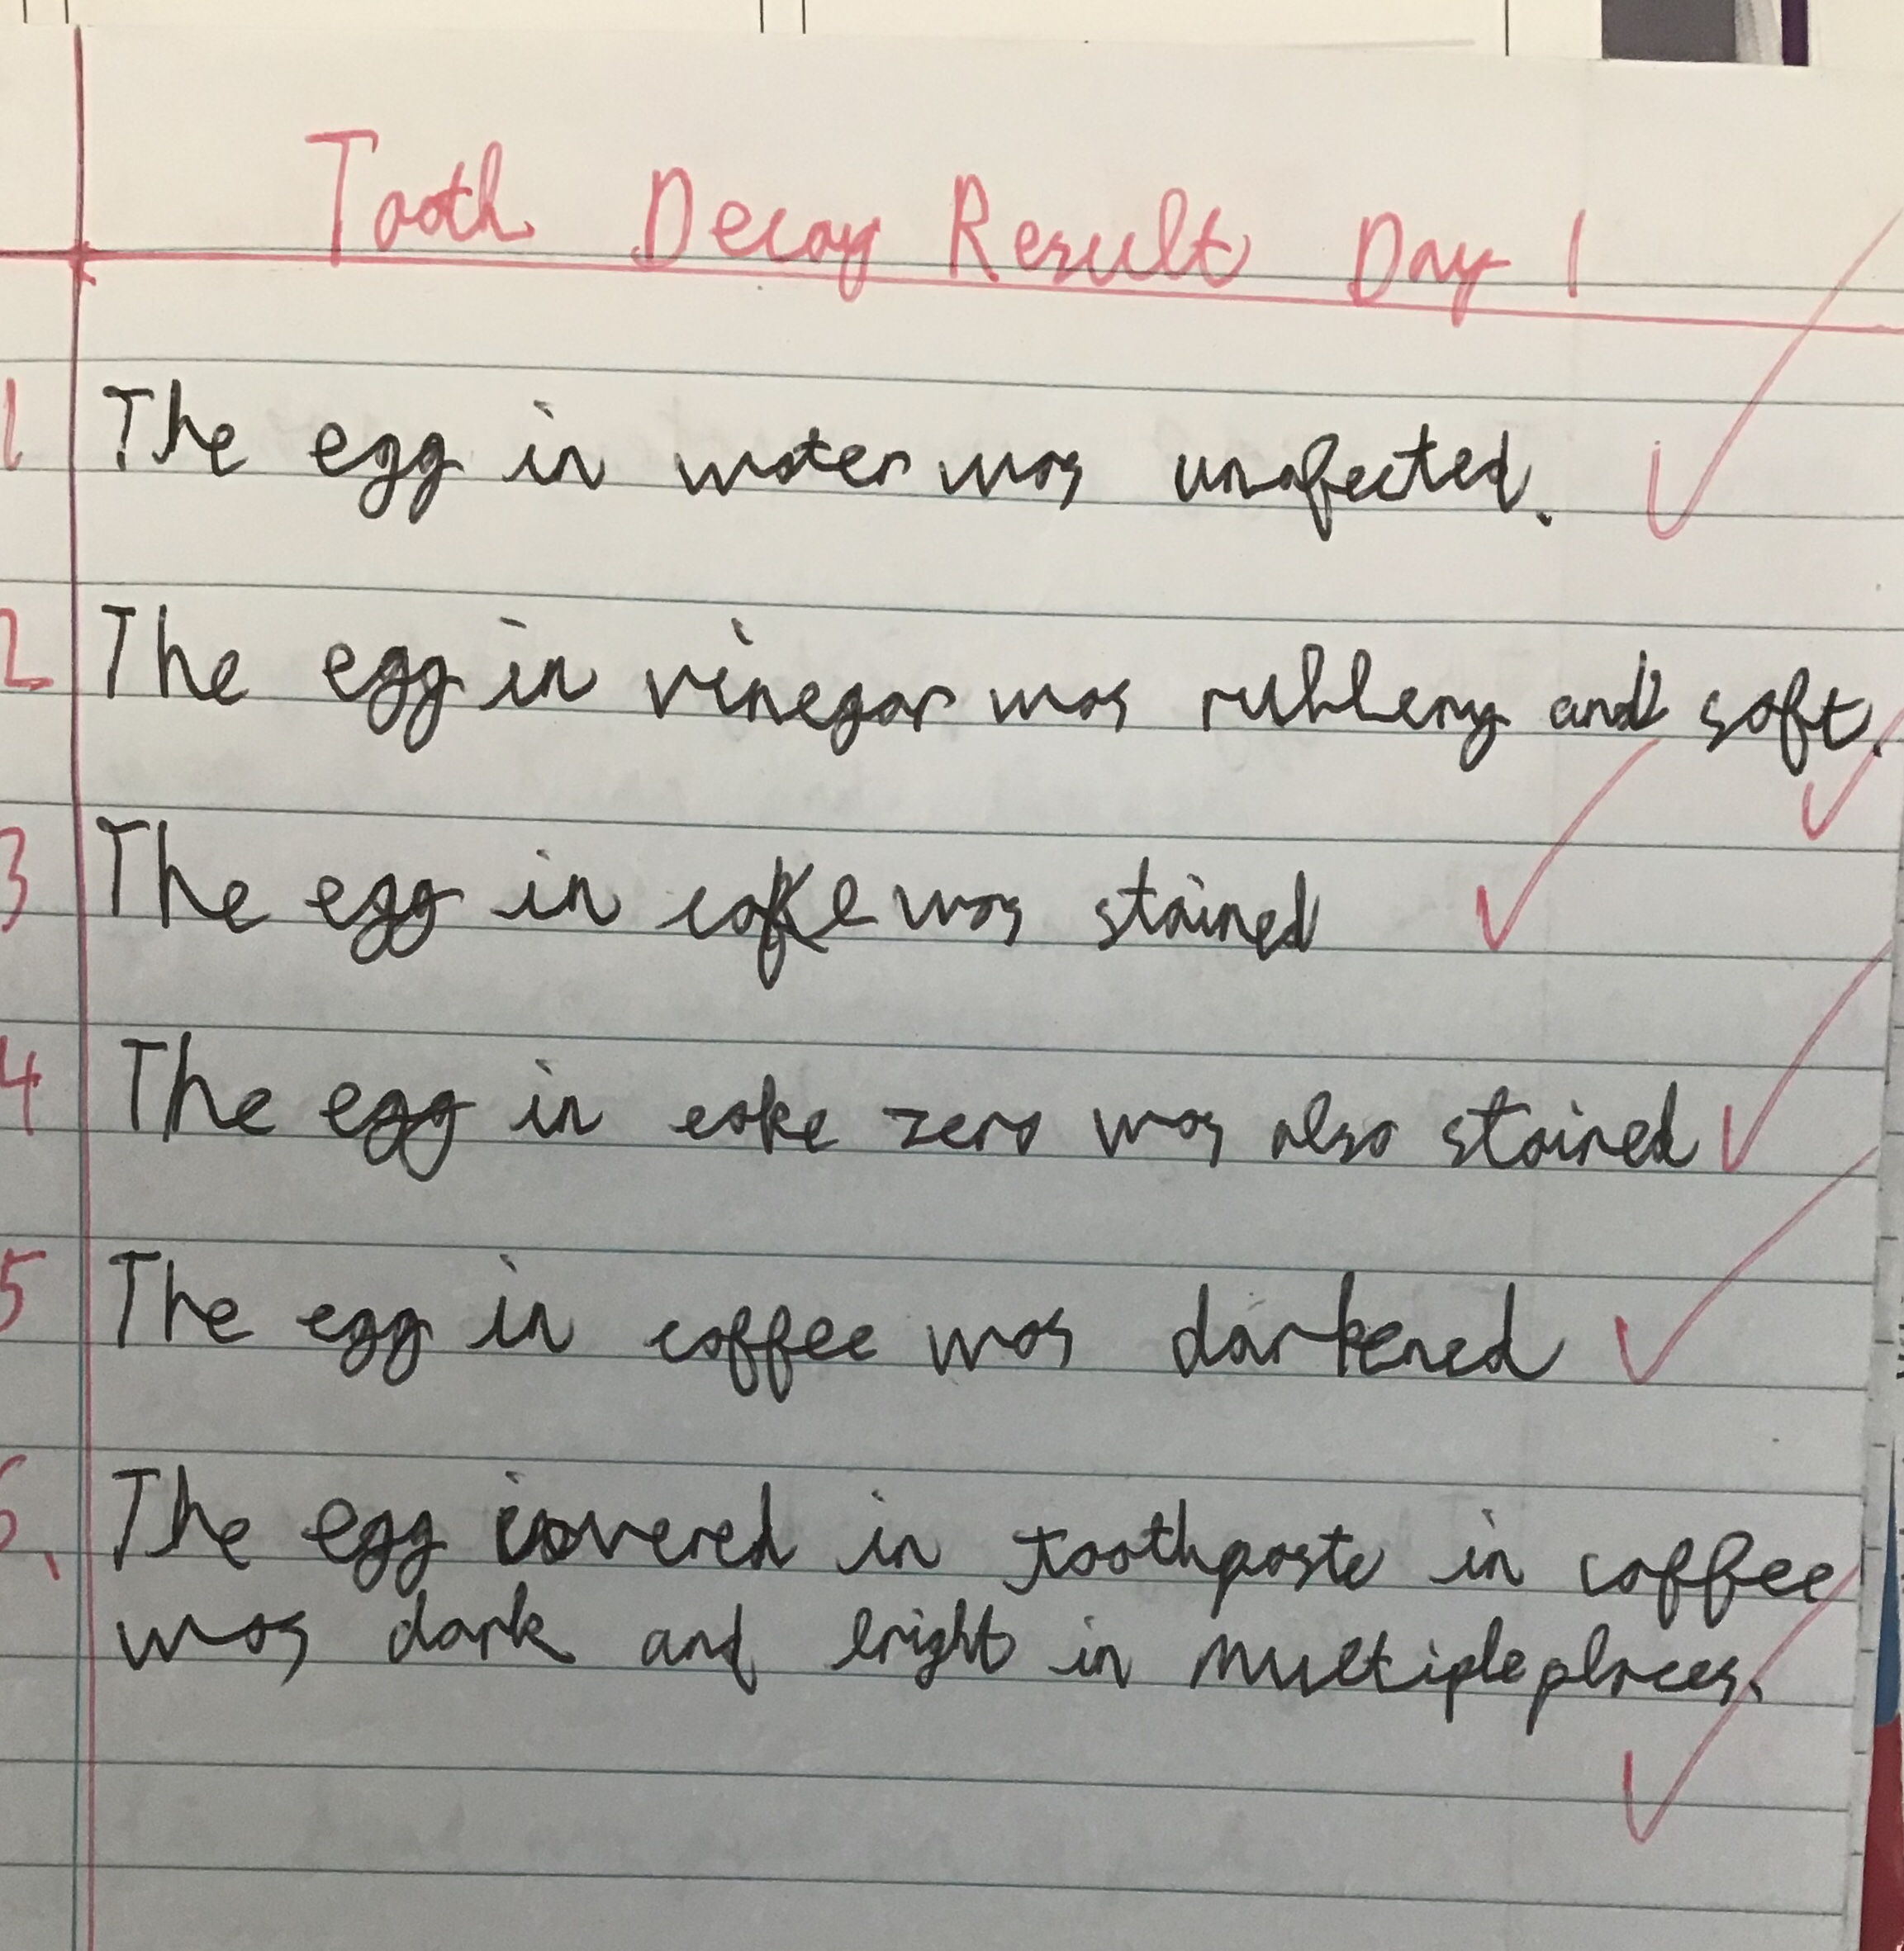 Tooth Decay Result Day 1
1 The egg in water was unafected.
2 The egg in vinegar was rubbery and soft.
3 The egg in coke was stained
4 The egg in coke zero was also stained
5 The egg in coffee was darkened
6. The egg covered in toothpaste in coffee
was dark and bright in multiple places.